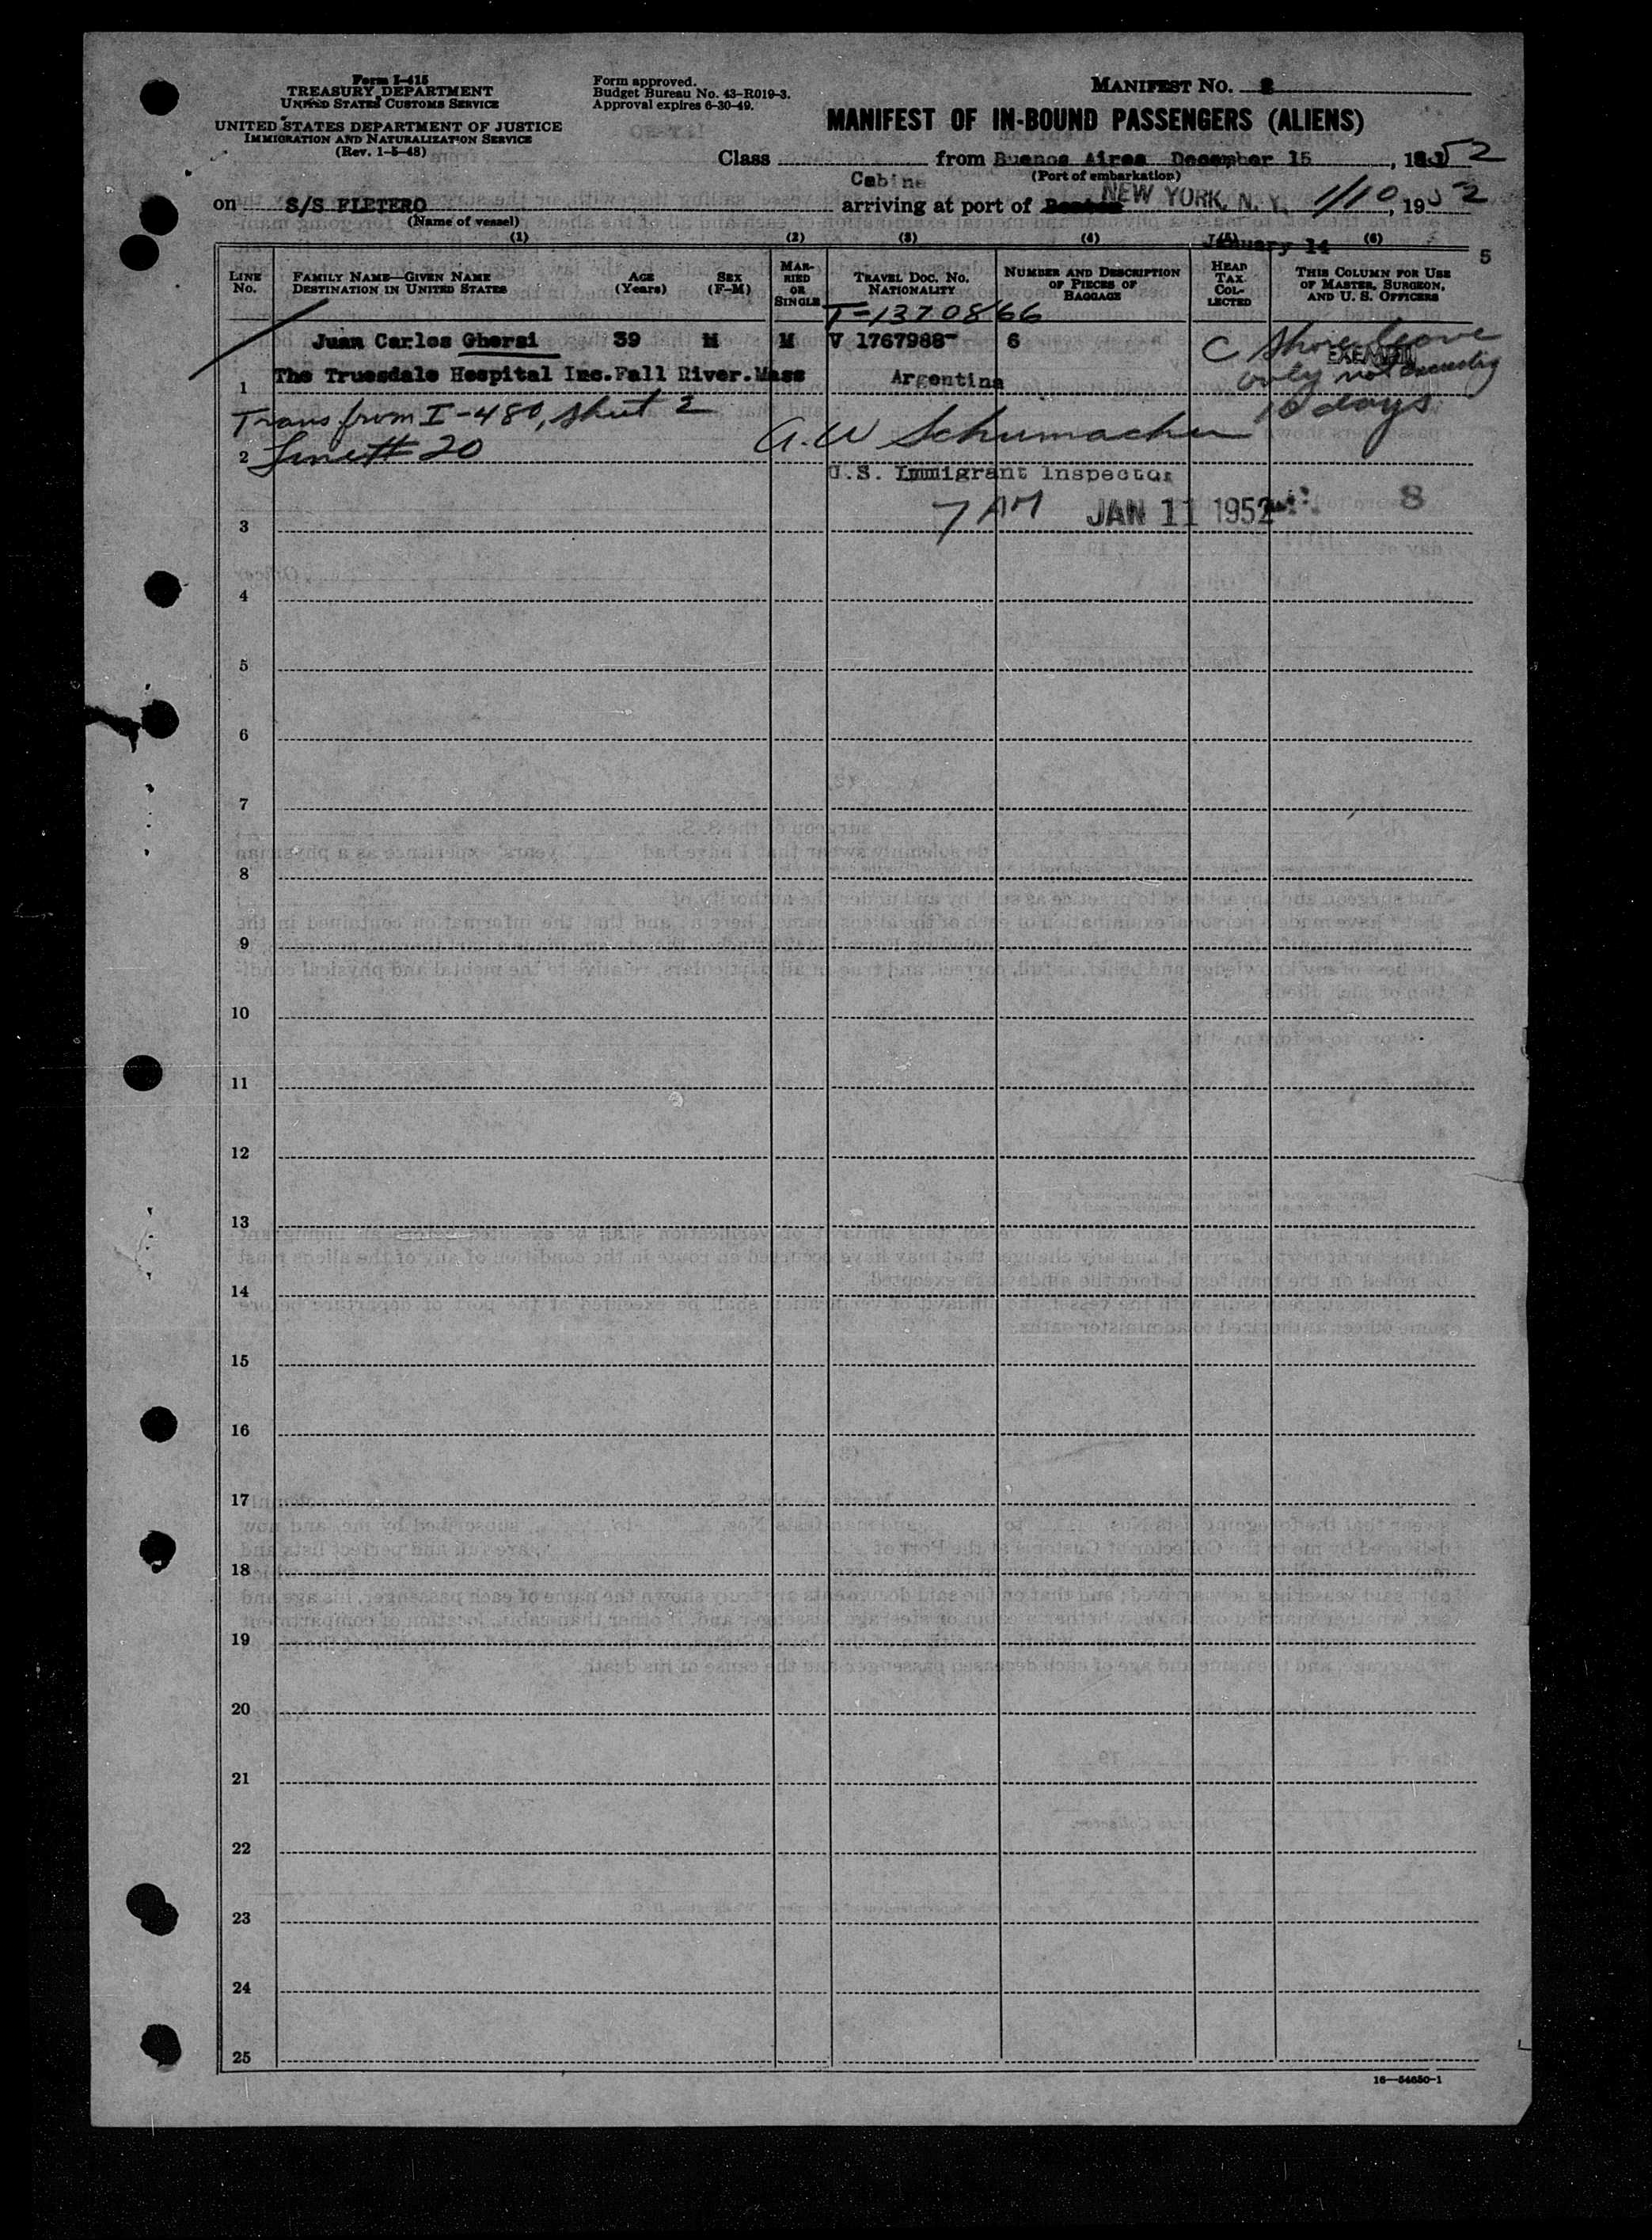 Form I-415
TREASURY DEPARTMENT
UNITED STATES CUSTOMS SERVICE
UNITED STATES DEPARTMENT OF JUSTICE
IMMIGRATION AND NATURALIZATION SERVICE
(Rev. 1-5-48)
Form approved.
Budget Bureau No. 43-R019-3.
Approval expires 6-30-49.
MANIFEST NO.
MANIFEST OF IN-BOUND PASSENGERS (ALIENS)
Class Cabine from Buenos Aires December 15, 52
(Port of embarkation)
on S/S FLETERO arriving at port of Boston NEW YORK, N. Y. 1/10, 1952
(Name of vessel)
January 14
(1) (2) (3) (4) (5) (6)
5
LINE No.
FAMILY NAME—GIVEN NAME
DESTINATION IN UNITED STATES
AGE (Years)
SEX (F-M)
MARRIED OR SINGLE
TRAVEL DOC. NO.
NATIONALITY
NUMBER AND DESCRIPTION OF PIECES OF BAGGAGE
HEAD TAX COLLECTED
THIS COLUMN FOR USE OF MASTER, SURGEON, AND U. S. OFFICERS
T-1370866
Juan Carlos Ghersi 39 M M V 1767988 6
C Shore leave
EXEMPT
only not exceeding
1 The Truesdale Hospital Inc.Fall River.Mass Argentina
10 days
Trans from I-480, sheet 2
A.W Schumacher
2 Line # 20
U.S. Immigrant Inspector
7 AM JAN 11 1952 8
3
4
5
6
7
8
9
10
11
12
13
14
15
16
17
18
19
20
21
22
23
24
25
16—54650-1